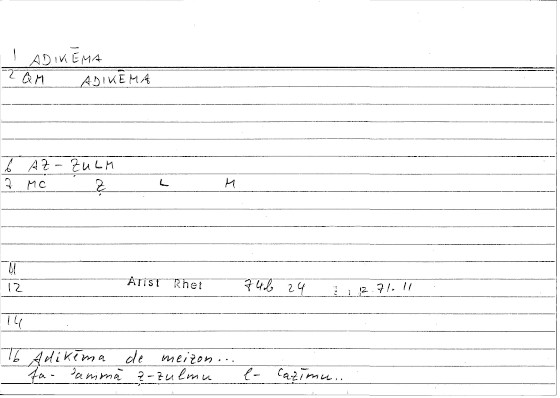 1 ADIKĒMA
2 QM ADIKĒMA
6 AẒ-ẒULM
7 MC Ẓ L M
11
12 Arist Rhet 74b 24 71.11
14
16 Adikēma de meizon...
fa-ʾammā ẓ-ẓulmu l-ʿaẓīmu..